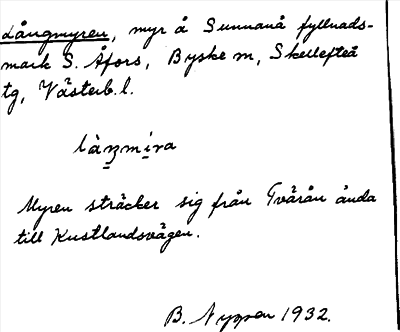 Långmyren, myr å Sunnanå fyllnads-
mark S. Åfors, Byske m, Skellefteå
tg, Västerb. l.
làŋmira
Myren sträcker sig från Tvärån ända
till Kustlandsvägen.
B. Nyman 1932.